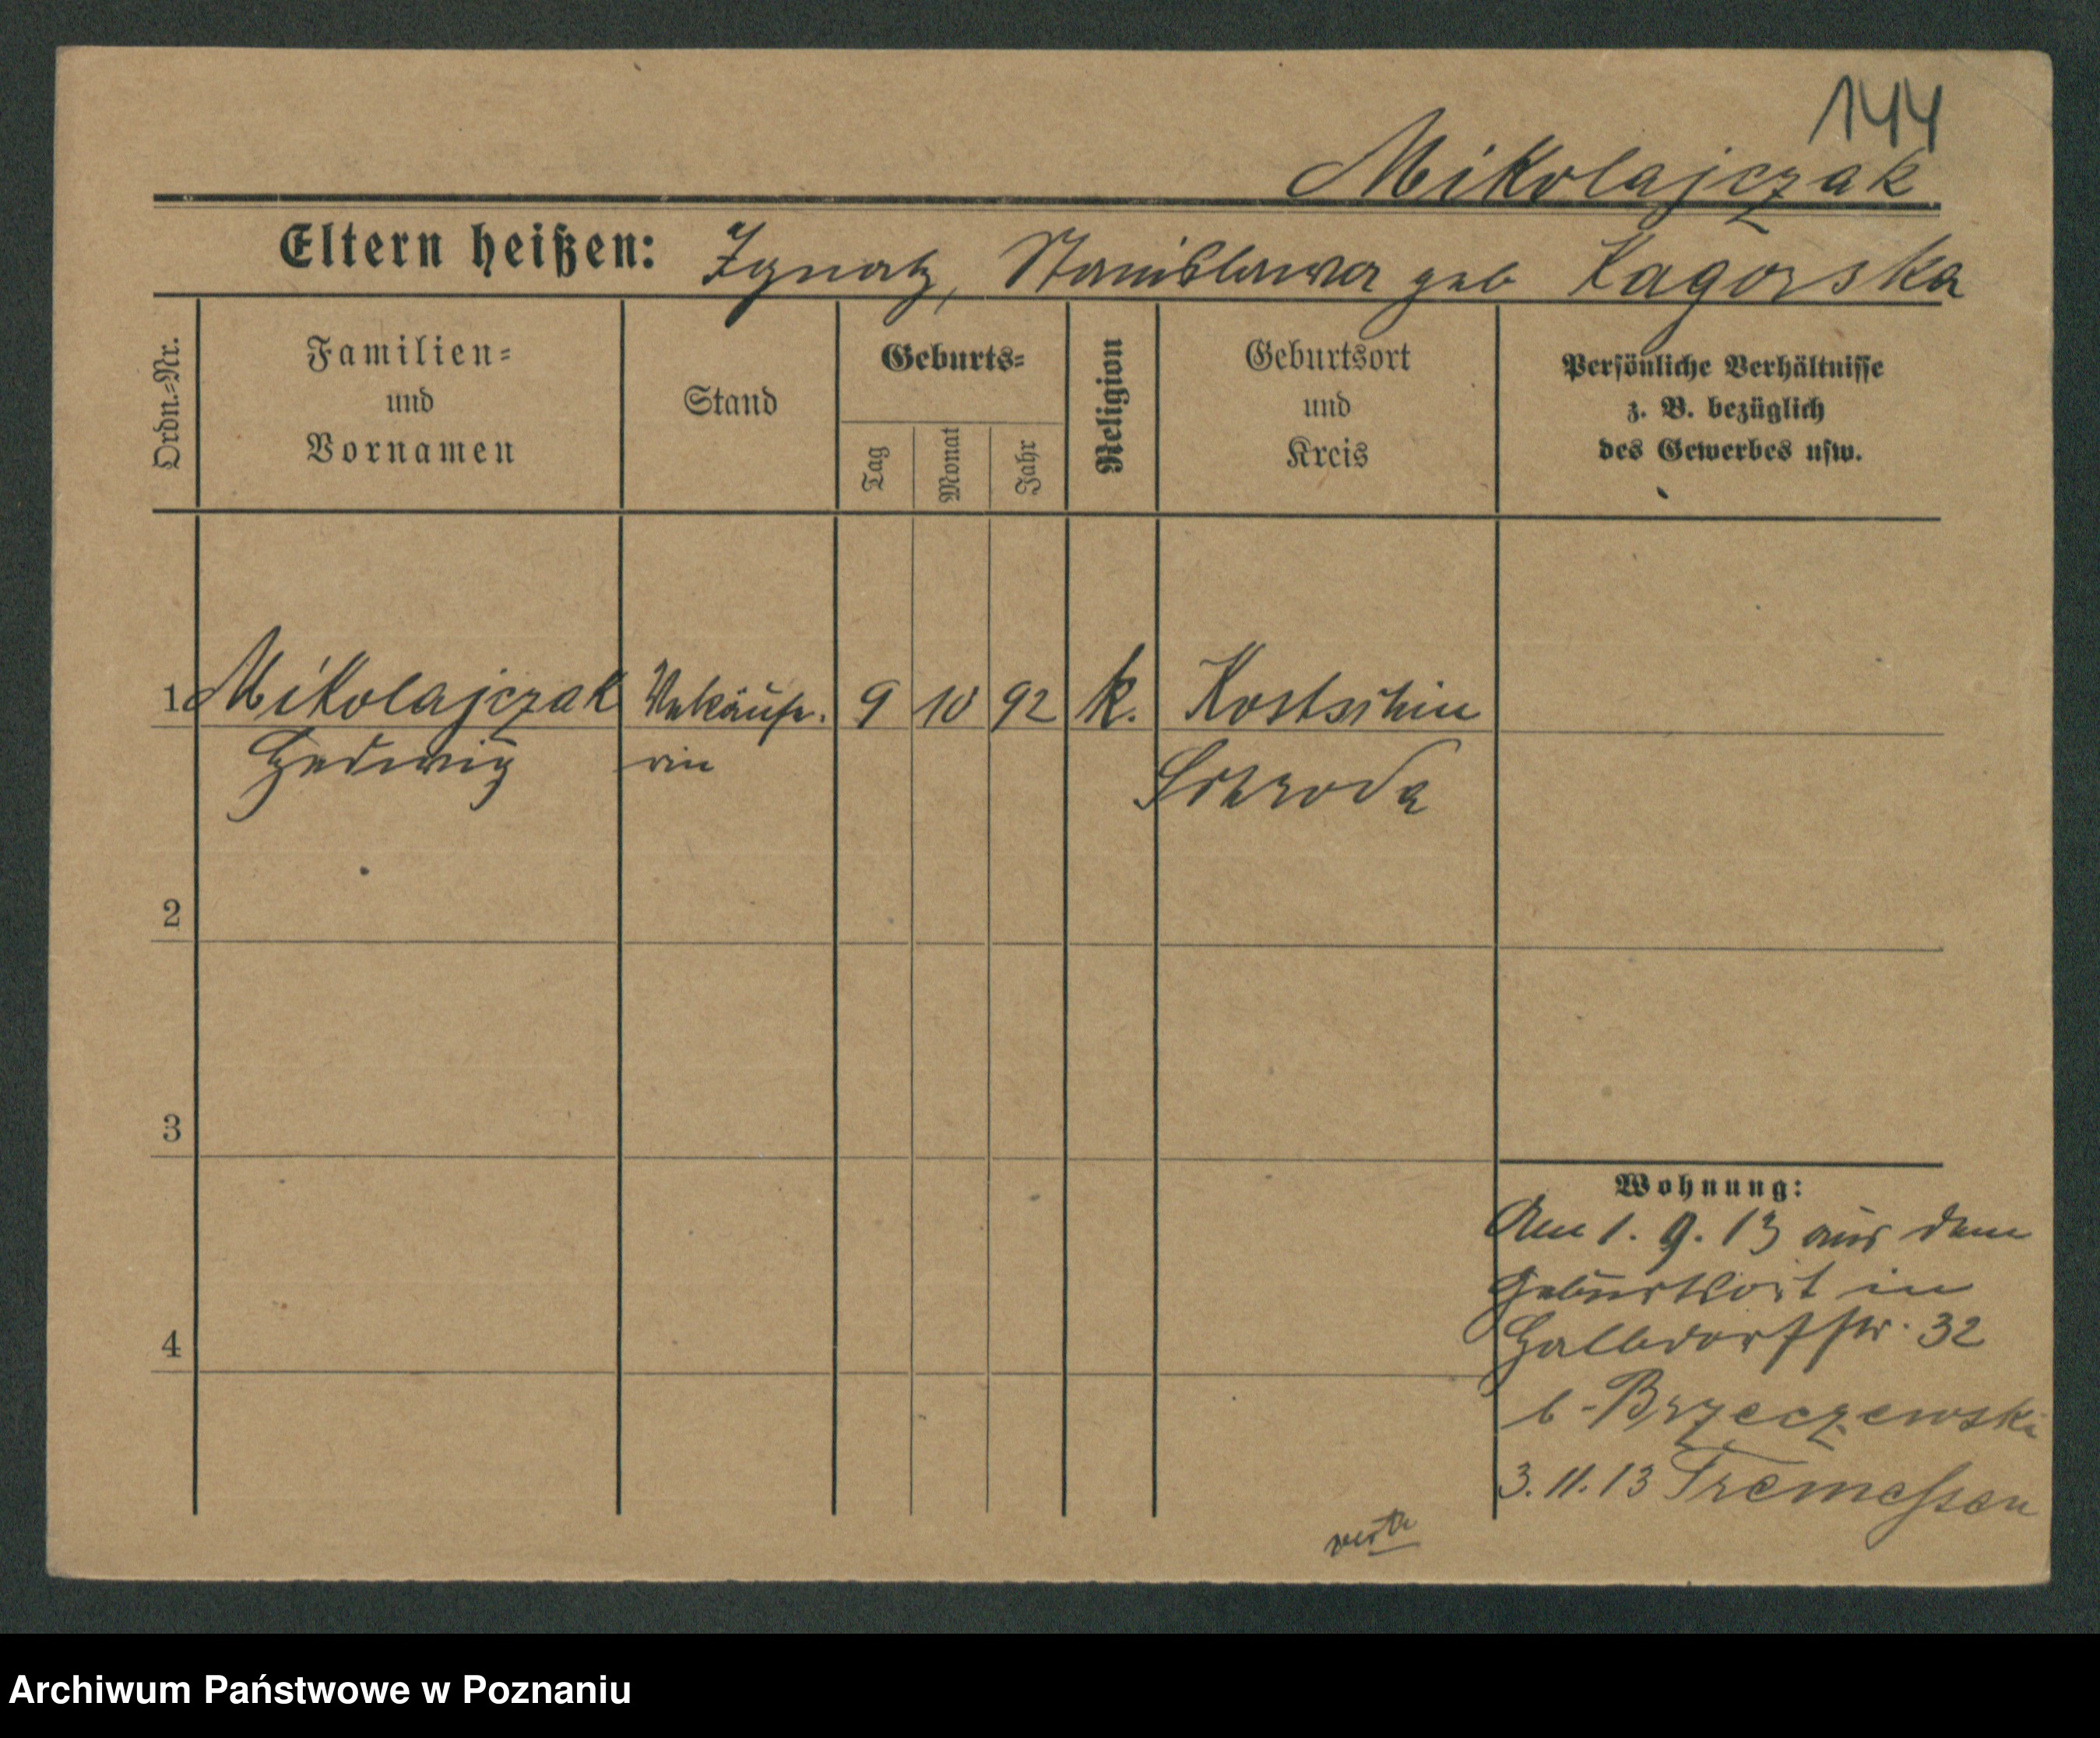 144
Mikolajczak
Eltern heißen: Ignatz, Stanislawa geb Kagorska
Ordn.-Nr.
Familien-
und
Vornamen
Stand
Geburts-
Tag
Monat
Jahr
Religion
Geburtsort
und
Kreis
Persönliche Verhältnisse
z. B. bezüglich
des Gewerbes usw.
1 Mikolajczak Verkäufe. 9 10 92 k. Kostschin
Hedwig rin Schroda
2
3
4
Wohnung:
Am 1. 9. 13 aus dem
Geburtsort in
Halbdorfstr. 32
b. Brzeczewski
3. 11. 13 Tremessen
Archiwum Państwowe w Poznaniu